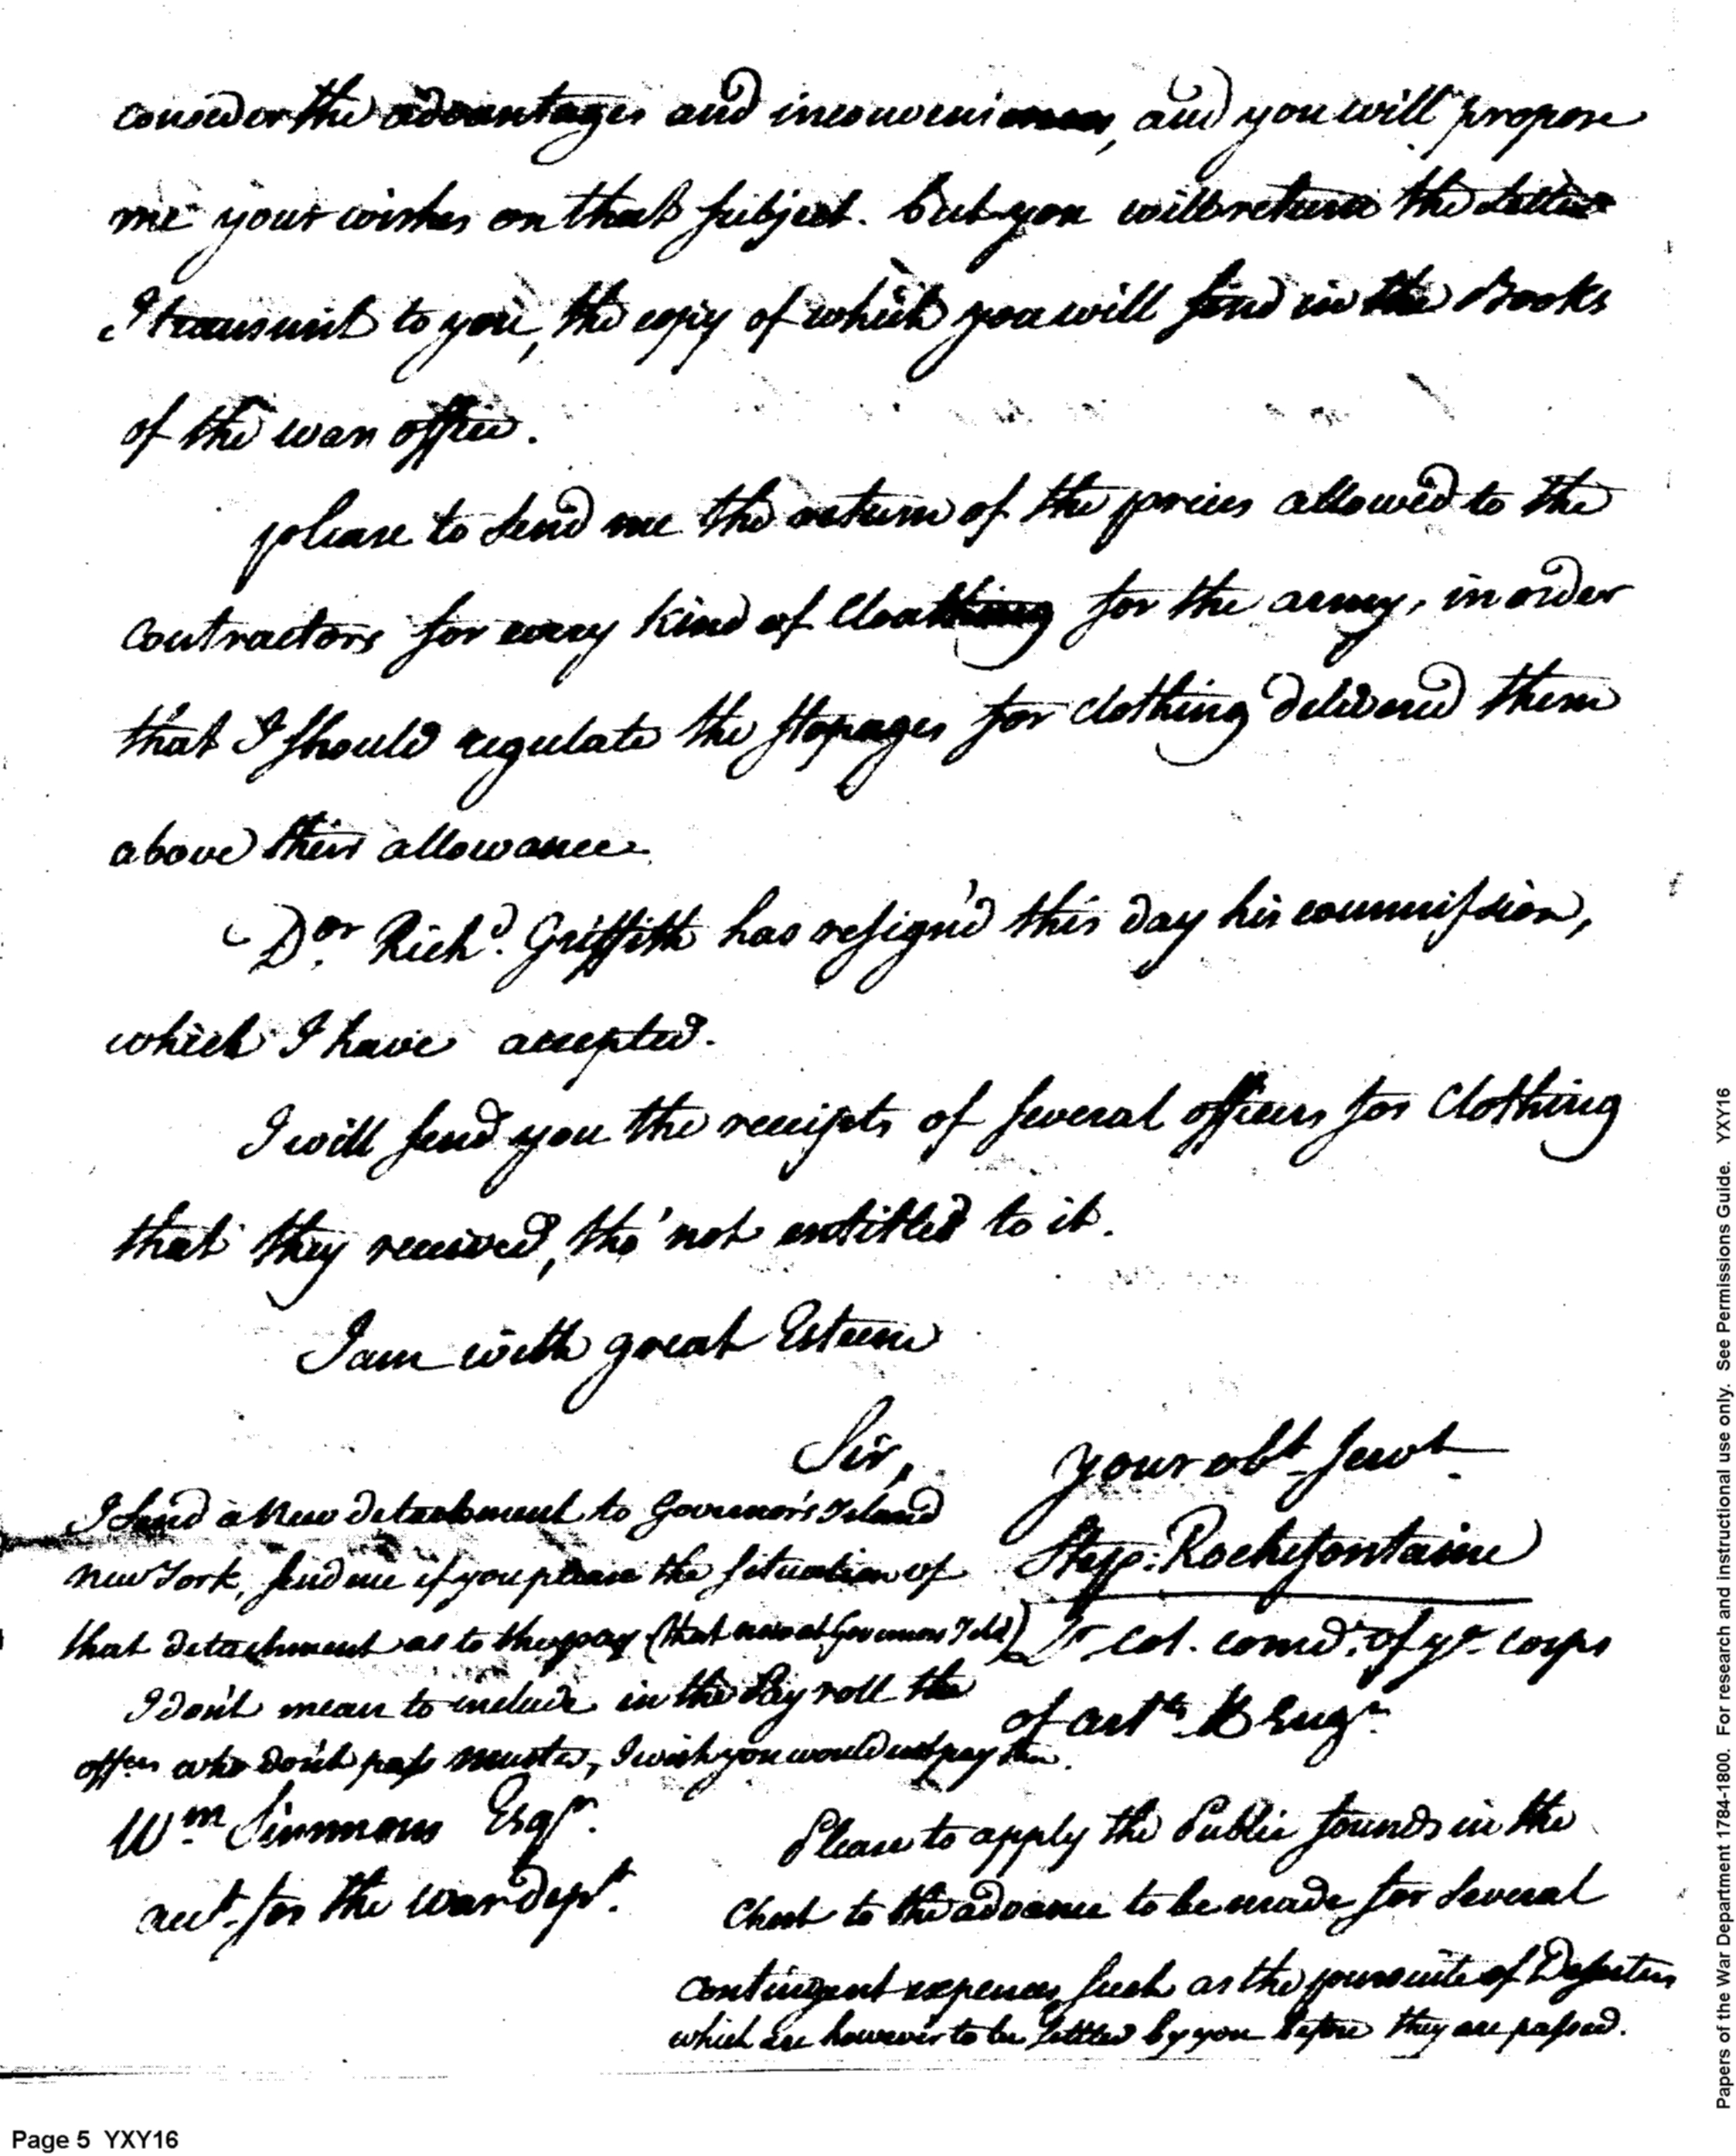 consider the advantages and inconveniences, and you will propose
me your wishes on that subject. but you will return the Letter
I transmit to you, the copy of which you will find in the Books
of the war office.
please to send me the return of the prices allowed to the
contractors for every kind of Cloathing for the army, in order
that I should regulate the stopages for clothing delivered them
above their allowance.
Dor Richd. Griffith has resign'd this day his commission,
which I have accepted.
I will send you the receipts of several officers for Clothing
that they received, tho' not entitled to it.
I am with great Esteem
Sir,
your obt servt.
Step: Rochefontaine
Lt col. comd. of ye corps
of arts & Engrs
I send a new detachment to Governor's Island
New York, send me if you please the situation of
that detachment as to the pay (that now at Governors Isld)
I don't mean to include in the Pay roll the
offers who don't pass muster, I wish you would not pay them.
Wm Simmons Esqr.
acct. for the war dept.
Please to apply the Public founds in the
Chest to the advance to be made for several
contingent expences such as the poursuite of Deserters
which are however to be settled by you before they are passed.
Page 5 YXY16
Papers of the War Department 1784-1800. For research and instructional use only. See Permissions Guide. YXY16